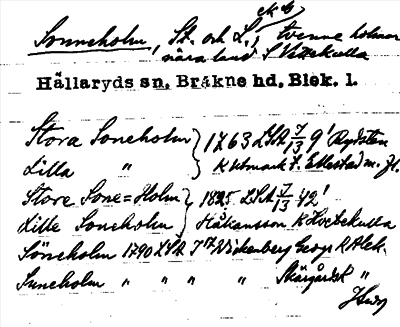 Sonneholm, St. och L., tvenne holmar
nära land S Vettekulla
Hällaryds sn. Bräkne hd, Blek. l.
Stora Soneholm } 1763 LSA 7/13 9' Rydsten
Lilla " } K Utmark t. Ellestad m. fl.
Store Sone=Holm } 1825 LSA 7/13 42'
Lille Soneholm } Håkansson K
Söneholm 1790 LSA J 17 Wickenberg Geogr K
Suneholm " " " " Skärgårdsk "